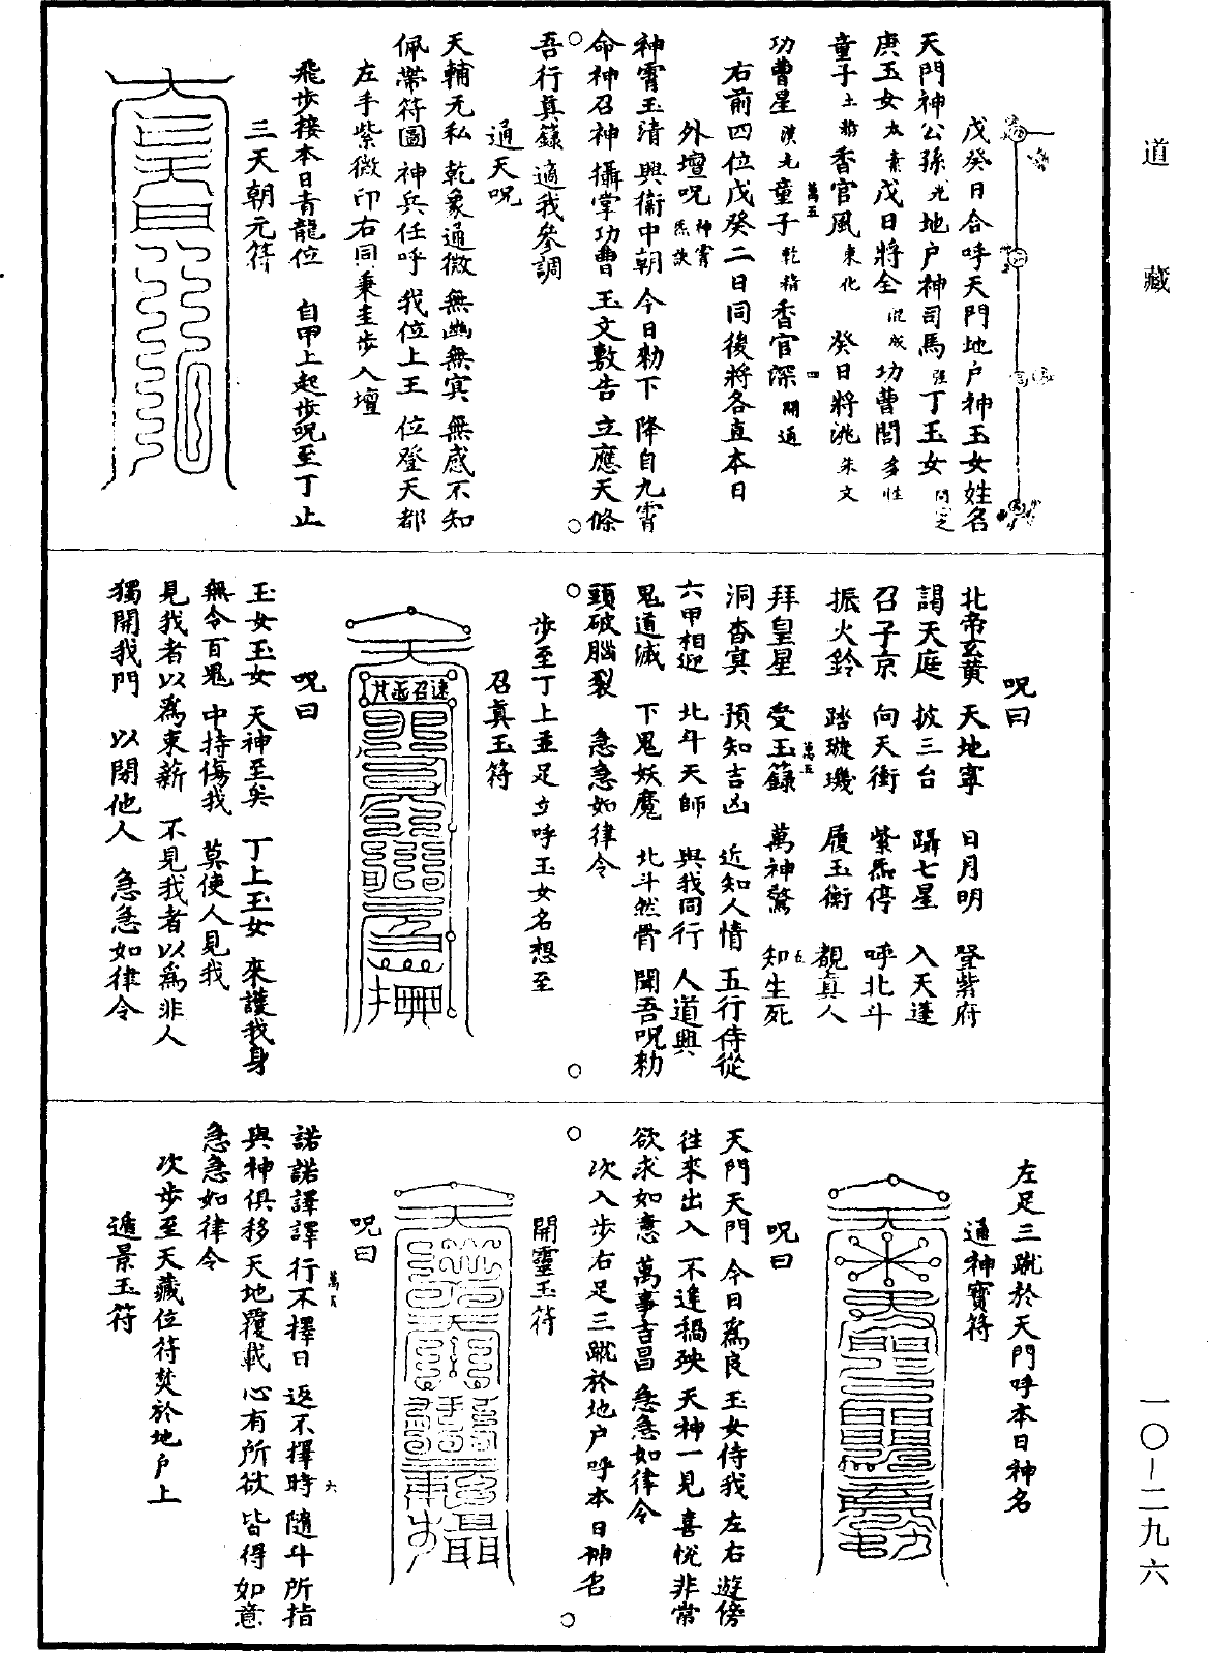 道藏
戊癸日合呼天門地户神玉女姓名
天門神公孫光地户神司馬強丁玉女
庚玉女太素戊日將全混成功曹閻多性
童子土精香官風東化 癸日將洮朱文
功曹星漢光童子乾精香官深開通
右前四位戊癸二日同後將各直本日
外壇呪神霄炁訣
神霄玉清 興衛中朝 今日勑下 降自九霄
命神召神 攝掌功曹 玉文敷告 立應天條
吾行眞籙 適我參調
通天呪
天輔无私 乾象通微 無幽無㝠 無感不知
佩帶符圖 神兵任呼 我位上王 位登天都
左手紫微印右同秉圭步入壇
飛步接本日青龍位 自甲上起步呪至丁止
三天朝元符
呪曰
北帝玄黄 天地寧 日月明 登紫府
謁天庭 披三台 躡七星 入天蓬
召子京 向天衝 紫炁停 呼北斗
振火鈴 踏璇璣 履玉衡 覩眞人
拜皇星 受玉籙 萬神驚 知生死
洞杳㝠 預知吉凶 近知人情 五行侍從
六甲相迎 北斗天師 與我同行 人道興
鬼道滅 下鬼妖魔 北斗然骨 聞吾呪勑
頭破腦裂 急急如律令
步至丁上並足立呼玉女名想至
召眞玉符
呪曰
玉女玉女 天神至矣 丁上玉女 來護我身
無令百鬼 中持傷我 莫使人見我
見我者以爲束薪 不見我者以爲非人
獨開我門 以閉他人 急急如律令
左足三蹴於天門呼本日神名
通神寶符
呪曰
天門天門 今日爲良 玉女侍我 左右遊傍
往來出入 不逢禍殃 天神一見 喜悅非常
欲求如意 萬事吉昌 急急如律令
次入步右足三蹴於地户呼本日神名
開靈玉符
呪曰
諾諾譯譯 行不擇日 返不擇時 隨斗所指
與神俱移 天地覆載 心有所欲 皆得如意
急急如律令
次步至天藏位符焚於地户上
遁景玉符
一〇－二九六